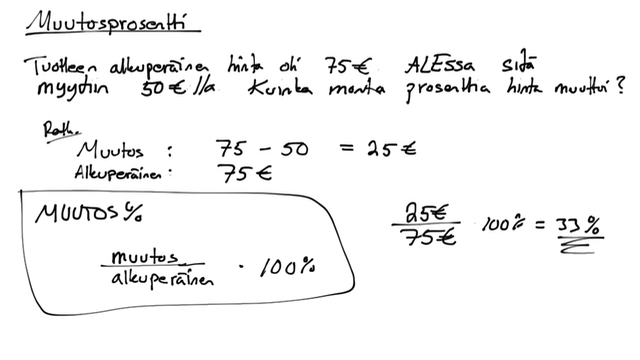 Muutosprosentti
Tuotteen alkuperäinen hinta oli 75€. ALEssa sitä
myytiin 50€:lla. Kuinka monta prosenttia hinta muuttui?
Ratk.
Muutos : 75 - 50 = 25€
Alkuperäinen: 75€
MUUTOS%
muutos / alkuperäinen · 100%
25€ / 75€ · 100% = 33%